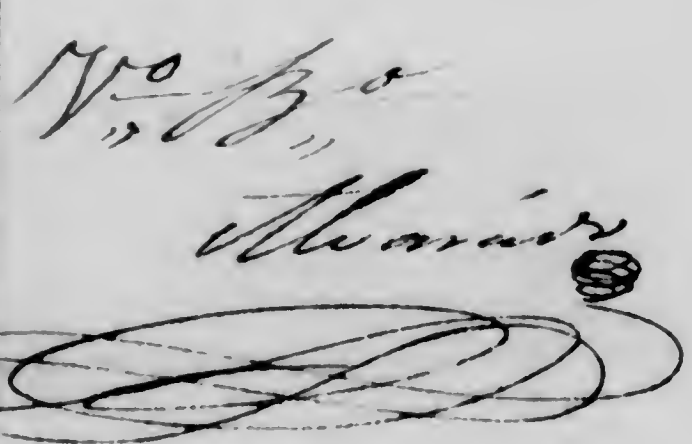 Vº Bº
Alvarez